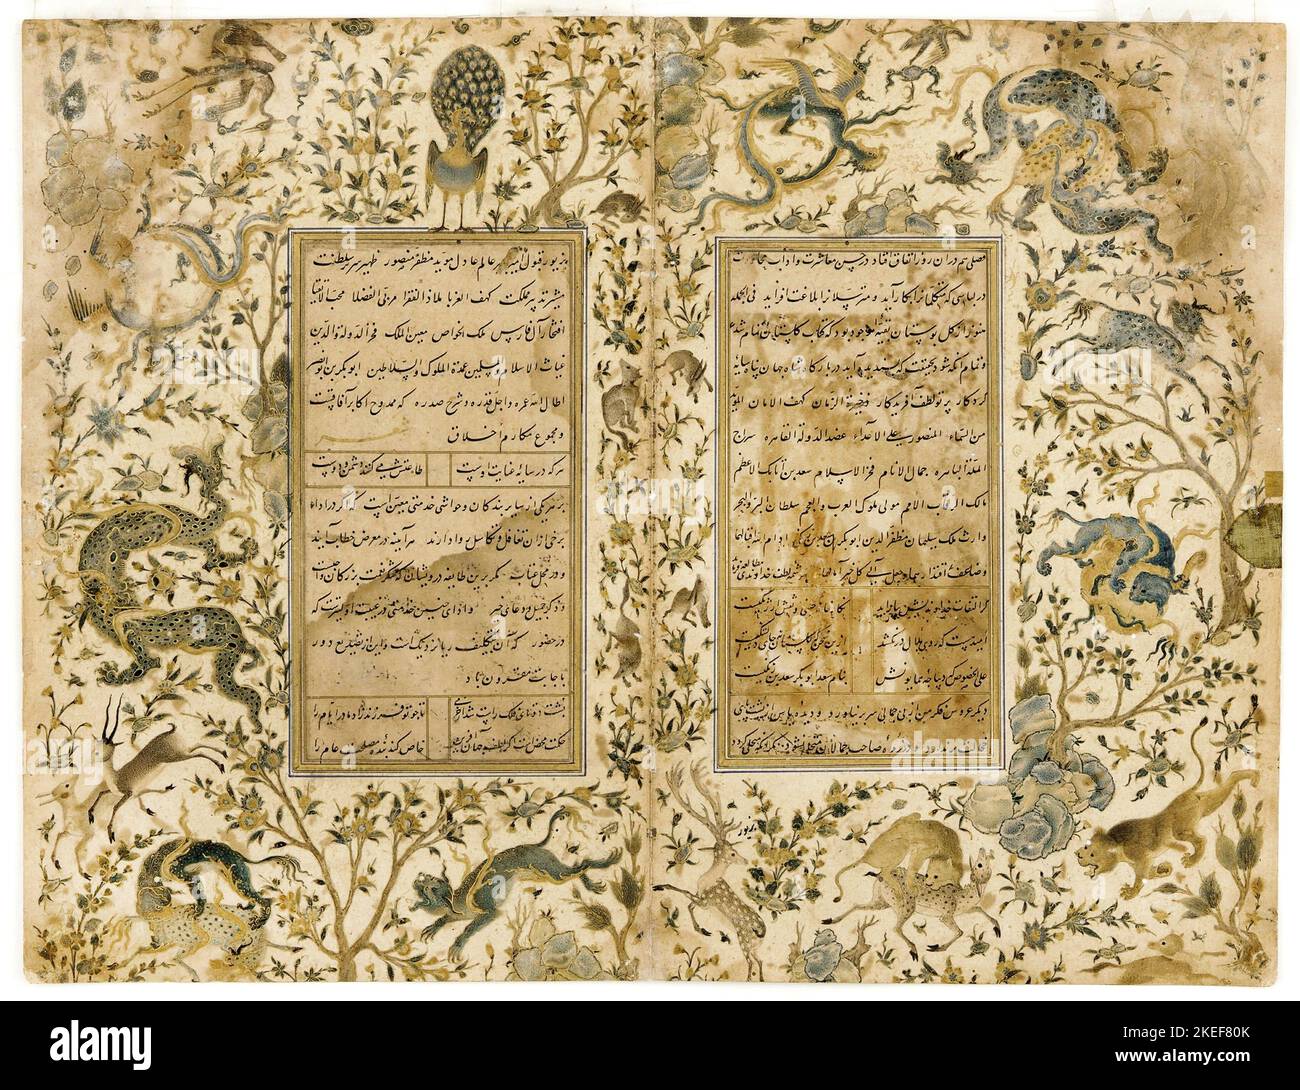 فصلی هم در آن روز اتفاق افتاد در حسن معاشرت و آداب محاورت
در لباسی که متکلمانرا بکار آید و مترسلانرا بلاغت افزاید فی الجمله
هنوز از گل بوستان بقیه موجود بود که کتاب گلستان تمام شد
و تمام آنگه شود بحقیقت که پسندیده آید در بارگاه شاه جهان پناه سایه
کردگار پرتو لطف آفریدگار ذخیرة الزمان کهف الامان المؤید
من السماء المنصور علی الاعداء عضد الدولة القاهره سراج
الملة الباهره جمال الانام فخر الاسلام سعد بن اتابک الاعظم
مالک الرقاب الامم مولی ملوک العرب والعجم سلطان البر والبحر
وارث ملک سلیمان مظفر الدین ابوبکر بن سعد بن زنگی ادام الله اقبالهما
لطف خداوندی مطالعه فرماید
گر التفات خداوندیش بیاراید نگارخانه چینی و نقش ارژنگیست
امید هست که روی ملال درنکشد ازین سخن که گلستان نه جای دلتنگیست
علی الخصوص که دیباچه همایونش بنام سعد ابوبکر سعد بن زنگیست
دیگر عروس فکر من از بی جمالی سر برنیاورد و دیده یاس از پشت پای
خجالت برندارد و در زمره صاحب جمالان متجلی نشود مگر آنکه متحلی گردد
بزیور قبول امیر کبیر عالم عادل موید مظفر منصور ظهیر سریر سلطنت
مشیر تدبیر مملکت کهف الغربا ملاذ الفقرا مربی الفضلا محب الاتقیا
افتخار آل فارس ملک الخواص معین الملک فخر الدوله والدین
غیاث الاسلام والمسلمین عمدة الملوک والسلاطین ابوبکر بن ابونصر
اطال الله عمره و اجل قدره و شرح صدره که ممدوح اکابر آفاقست
و مجموع مکارم اخلاق
هر که در سایه عنایت اوست طاعتش می کند و دشمن دوست
بر هر یکی از سایر بندگان و حواشی خدمتی معین است که اگر در اداء
برخی از آن تغافل و تکاسل روا دارند هر آینه در معرض خطاب آیند
و در محل عتاب مگر برین طایفه درویشان که شکر نعمت بزرگان واجبست
و ذکر جمیل و دعای خیر و ادای چنین خدمتی در غیبت اولیترست که
در حضور که آن بتکلف دور
باجابت مقرون باد
پشت دوتای فلک راست شد از خرمی تا چو تو فرزند زاد مادر ایام را
حکمت محض است اگر لطف جهان آفرین خاص کند بنده مصلحت عام را
alamy
Image ID: 2KEF80K
www.alamy.com